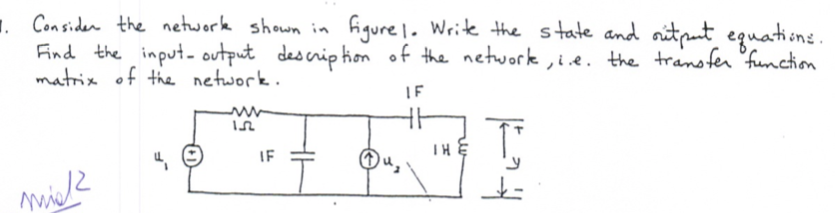 1. Consider the network shown in figure 1. Write the state and output equations.
Find the input-output description of the network, i.e. the transfer function
matrix of the network.
1F
1Ω
u₁
1F
u₂
1H
+
y
-
mid2